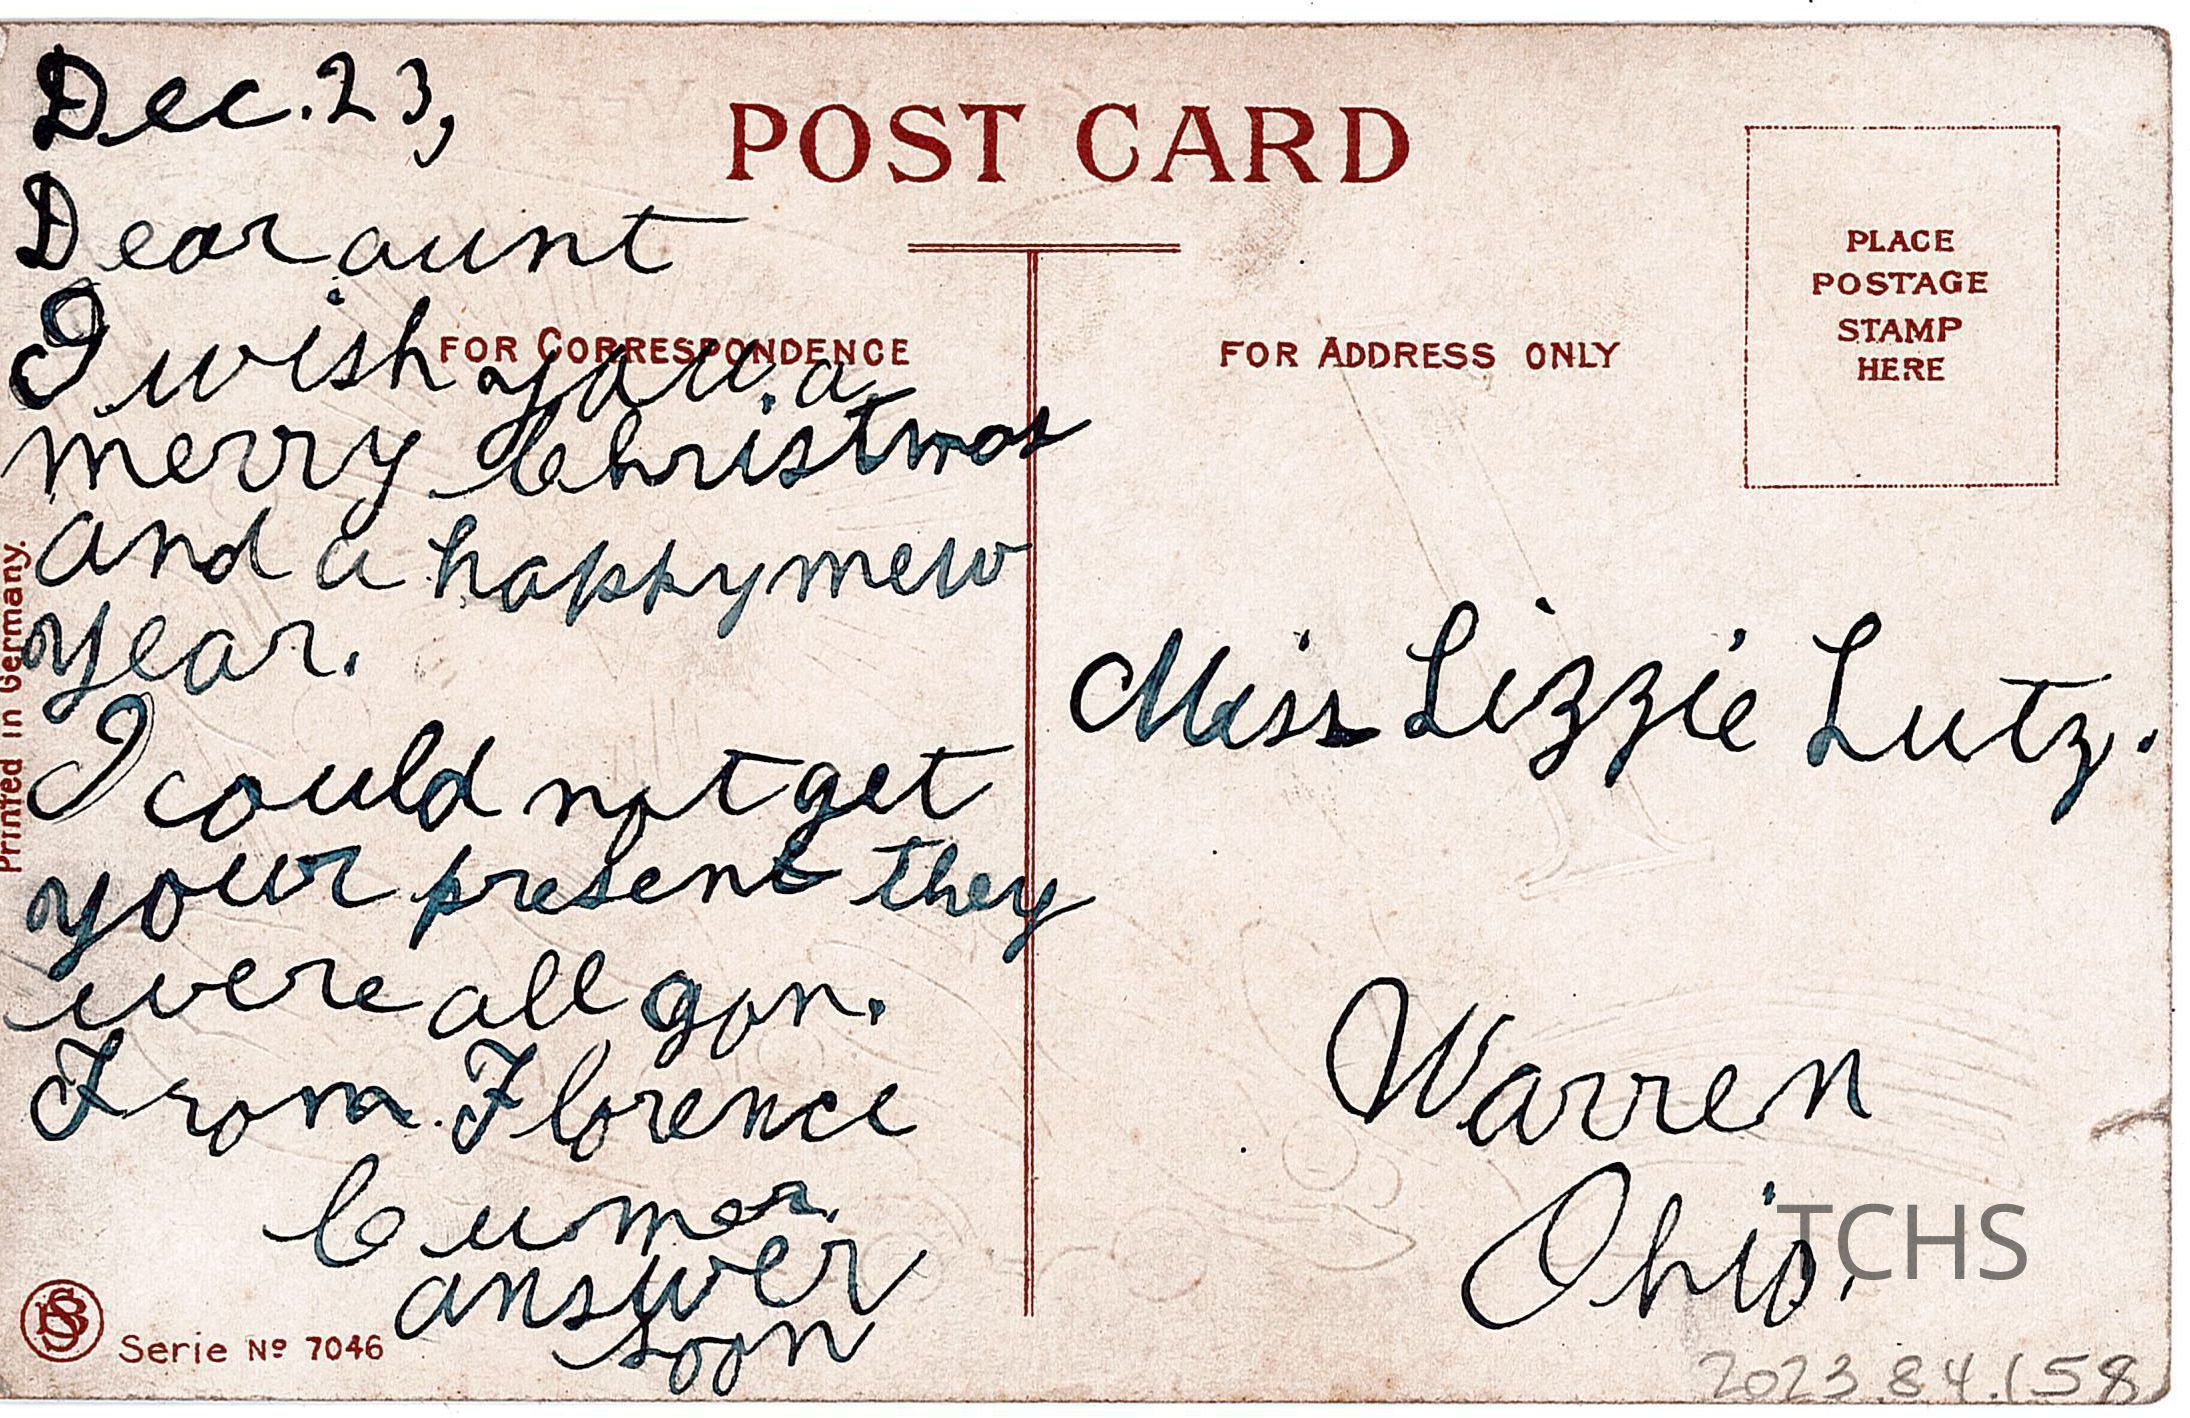 Dec. 23,
Dear aunt
I wish you a
merry Christmas
and a happy mew
year.
I could not get
your present they
were all gon.
From Florence
answer
soon
POST CARD
FOR CORRESPONDENCE
FOR ADDRESS ONLY
PLACE
POSTAGE
STAMP
HERE
Miss Lizzie Lutz.
Warren
Ohio.
TCHS
Printed in Germany.
Serie Nº 7046
2023.84.158